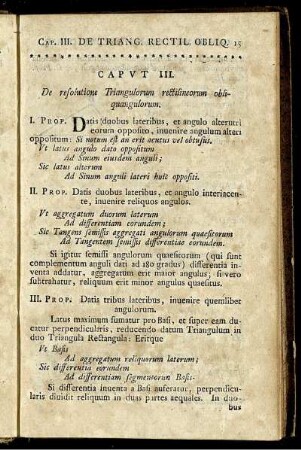 CAP. III. DE TRIANG. RECTIL. OBLIQ. 15
CAPVT III.
De resolutione Triangulorum rectilineorum obli-
quangulorum.
I. PROP. Datis duobus lateribus, et angulo alterutri
eorum opposito, inuenire angulum alteri
oppositum: Si notum est an erit acutus vel obtusus.
Vt latus angulo dato oppositum
Ad Sinum eiusdem anguli;
Sic latus alterum
Ad Sinum anguli lateri huic oppositi.
II. PROP. Datis duobus lateribus, et angulo interiacen-
te, inuenire reliquos angulos.
Vt aggregatum duorum laterum
Ad differentiam eorundem;
Sic Tangens semissis aggregati angulorum quaesitorum
Ad Tangentem semissis differentiae eorundem.
Si igitur semissi angulorum quaesitorum (qui sunt
complementum anguli dati ad 180 gradus) differentia in-
venta addatur, aggregatum erit maior angulus; si vero
subtrahatur, reliquum erit minor angulus quaesitus.
III. PROP. Datis tribus lateribus, inuenire quemlibet
angulorum.
Latus maximum sumatur pro Basi, et super eam du-
catur perpendicularis, reducendo datum Triangulum in
duo Triangula Rectangula: Eritque
Vt Basis
Ad aggregatum reliquorum laterum;
Sic differentia eorundem
Ad differentiam segmentorum Basis.
Si differentia inuenta a Basi auferatur, perpendicu-
laris diuidit reliquum in duas partes aequales. In duo-
bus